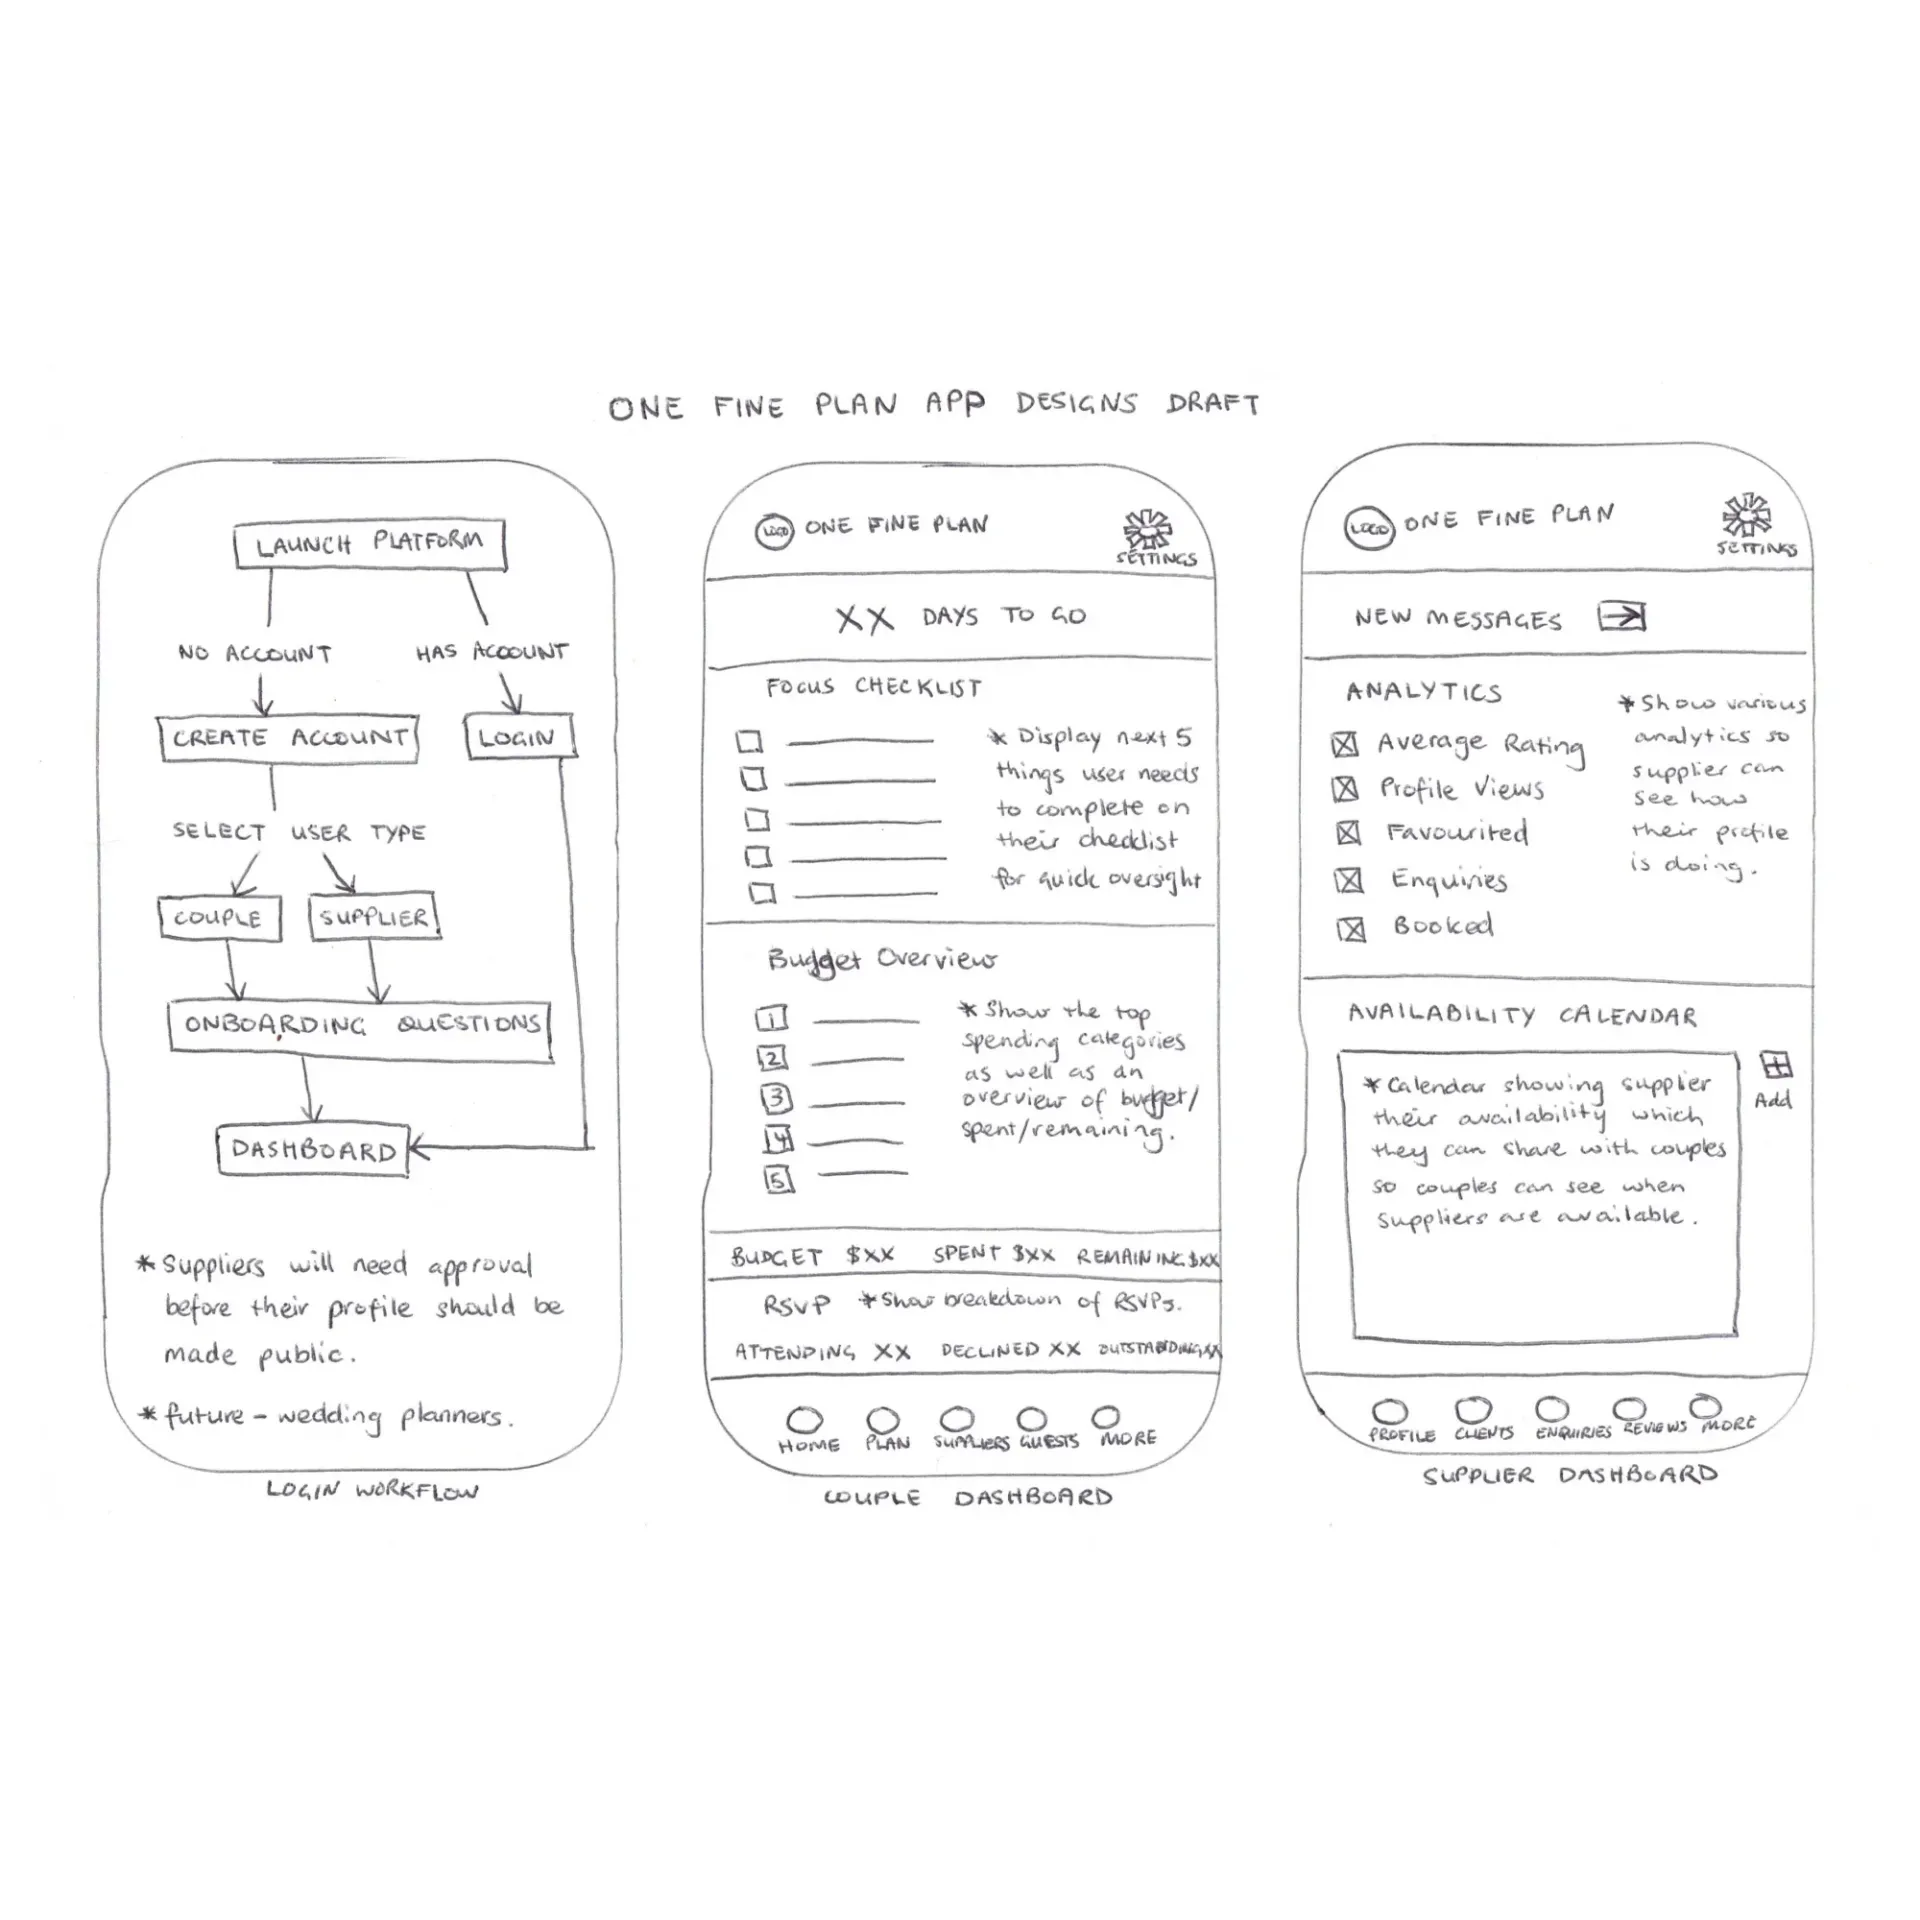 ONE FINE PLAN APP DESIGNS DRAFT
LAUNCH PLATFORM
NO ACCOUNT
HAS ACCOUNT
CREATE ACCOUNT
LOGIN
SELECT USER TYPE
COUPLE
SUPPLIER
ONBOARDING QUESTIONS
DASHBOARD
* Suppliers will need approval
before their profile should be
made public.
* future - wedding planners.
LOGIN WORKFLOW
LOGO ONE FINE PLAN
SETTINGS
XX DAYS TO GO
FOCUS CHECKLIST
* Display next 5
things user needs
to complete on
their checklist
for quick oversight
Budget Overview
1
2
3
4
5
* Show the top
spending categories
as well as an
overview of budget/
spent/remaining.
BUDGET $XX SPENT $XX REMAINING $XX
RSVP * Show breakdown of RSVPs.
ATTENDING XX DECLINED XX OUTSTANDING XX
HOME PLAN SUPPLIERS GUESTS MORE
COUPLE DASHBOARD
LOGO ONE FINE PLAN
SETTINGS
NEW MESSAGES
ANALYTICS
Average Rating
Profile Views
Favourited
Enquiries
Booked
* Show various
analytics so
supplier can
see how
their profile
is doing.
AVAILABILITY CALENDAR
* Calendar showing supplier
their availability which
they can share with couples
so couples can see when
suppliers are available.
Add
PROFILE CLIENTS ENQUIRIES REVIEWS MORE
SUPPLIER DASHBOARD